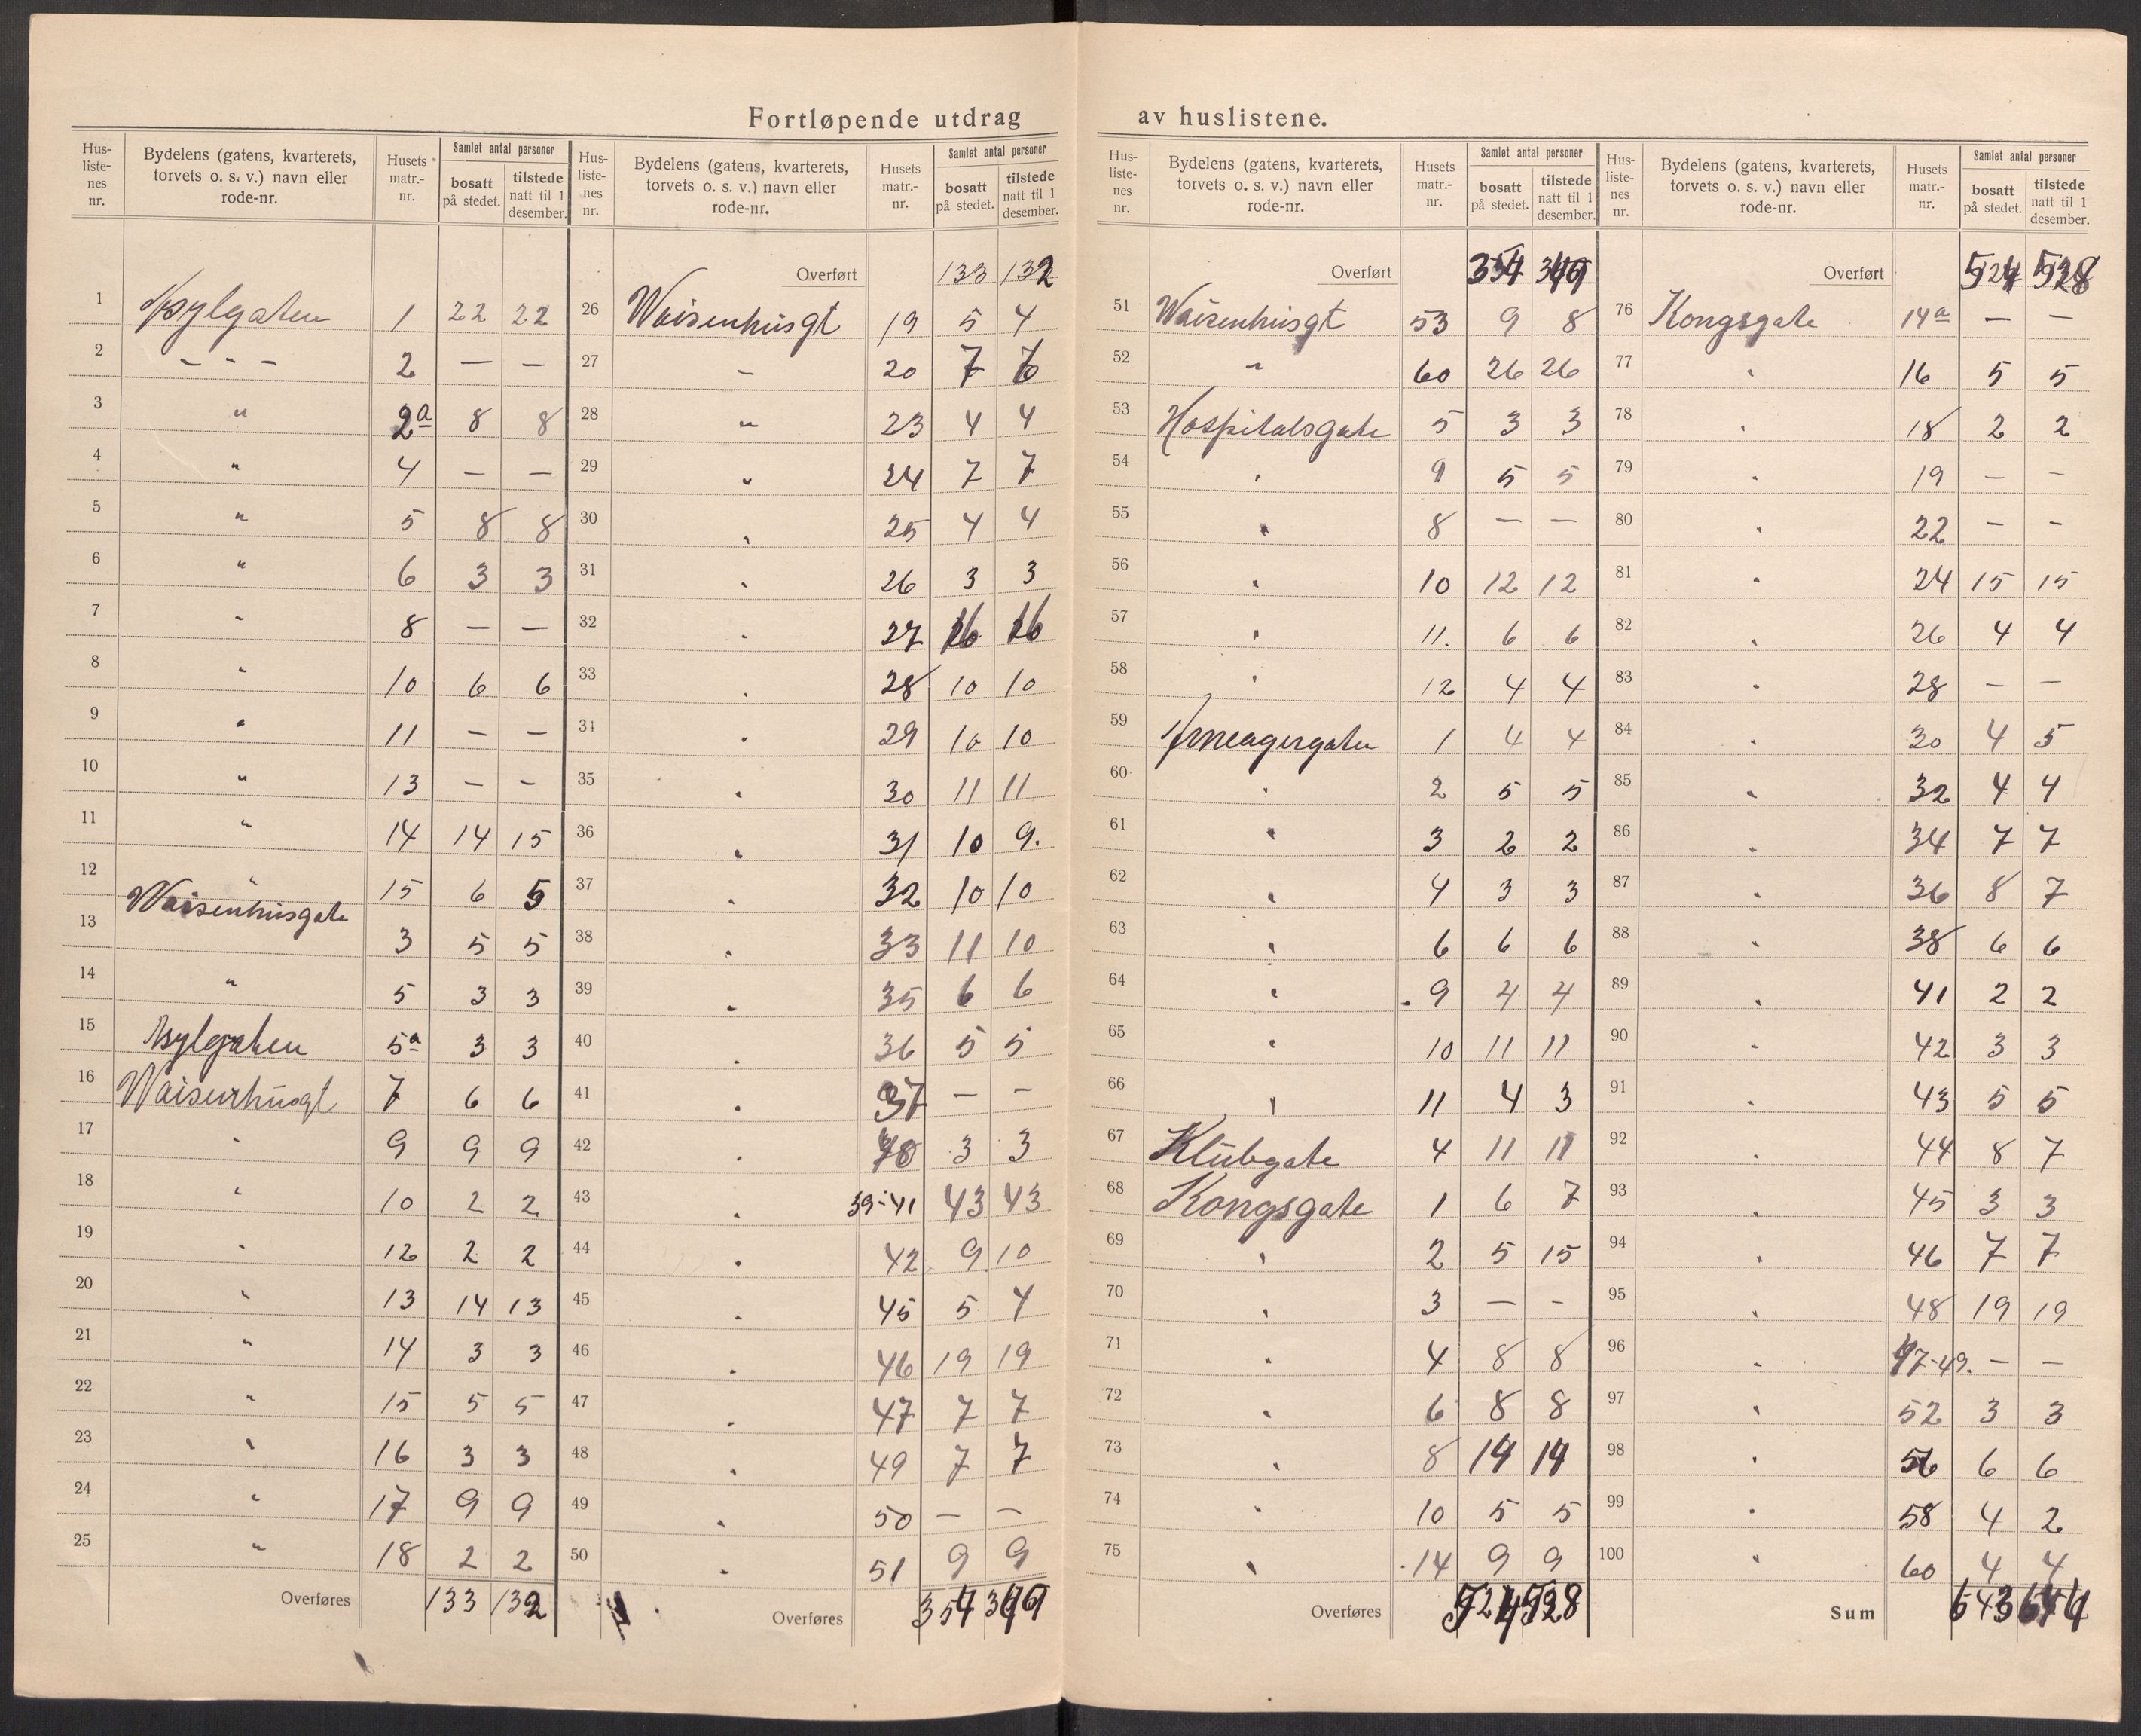 Fortløpende utdrag av huslistene.
Hus-liste-nes nr. | Bydelens (gatens, kvarterets, torvets o. s. v.) navn eller rode-nr. | Husets matr.-nr. | Samlet antal personer bosatt på stedet. | tilstede natt til 1 desember.
1 Asylgaten 1 22 22
2 - " - 2 — —
3 " 2a 8 8
4 " 4 — —
5 " 5 8 8
6 " 6 3 3
7 " 8 — —
8 " 10 6 6
9 " 11 — —
10 " 13 — —
11 " 14 14 15
12 " 15 6 5
13 Waisenhusgate 3 5 5
14 " 5 3 3
15 Asylgaten 5a 3 3
16 Waisenhusgt 7 6 6
17 " 9 9 9
18 " 10 2 2
19 " 12 2 2
20 " 13 14 13
21 " 14 3 3
22 " 15 5 5
23 " 16 3 3
24 " 17 9 9
25 " 18 2 2
Overføres 133 132
Hus-liste-nes nr. | Bydelens (gatens, kvarterets, torvets o. s. v.) navn eller rode-nr. | Husets matr.-nr. | Samlet antal personer bosatt på stedet. | tilstede natt til 1 desember.
Overført 133 132
26 Waisenhusgt 19 5 4
27 " 20 7 6
28 " 23 4 4
29 " 24 7 7
30 " 25 4 4
31 " 26 3 3
32 " 27 16 16
33 " 28 10 10
34 " 29 10 10
35 " 30 11 11
36 " 31 10 9.
37 " 32 10 10
38 " 33 11 10
39 " 35 6 6
40 " 36 5 5
41 " 37 — —
42 " 3 3
43 " 39-41 43 43
44 " 42 9 10
45 " 45 5 4
46 " 46 19 19
47 " 47 7 7
48 " 49 7 7
49 " 50 — —
50 " 51 9 9
Overføres 354 349
Hus-liste-nes nr. | Bydelens (gatens, kvarterets, torvets o. s. v.) navn eller rode-nr. | Husets matr.-nr. | Samlet antal personer bosatt på stedet. | tilstede natt til 1 desember.
Overført 354 349
51 Waisenhusgt 53 9 8
52 " 60 26 26
53 Hospitalsgate 5 3 3
54 " 9 5 5
55 " 8 — —
56 " 10 12 12
57 " 11. 6 6
58 " 12 4 4
59 1 4 4
60 " 2 5 5
61 " 3 2 2
62 " 4 3 3
63 " 6 6 6
64 " 9 4 4
65 " 10 11 11
66 " 11 4 3
67 Klubgate 4 11 11
68 Kongsgate 1 6 7
69 " 2 5 15
70 " 3 — —
71 " 4 8 8
72 " 6 8 8
73 " 8 14 14
74 " 10 5 5
75 " 14 9 9
Overføres 524 528
Hus-liste-nes nr. | Bydelens (gatens, kvarterets, torvets o. s. v.) navn eller rode-nr. | Husets matr.-nr. | Samlet antal personer bosatt på stedet. | tilstede natt til 1 desember.
Overført 524 528
76 Kongsgate 14a — —
77 " 16 5 5
78 " 18 2 2
79 " 19 — —
80 " 22 — —
81 " 24 15 15
82 " 26 4 4
83 " 28 — —
84 " 30 4 5
85 " 32 4 4
86 " 34 7 7
87 " 36 8 7
88 " 38 6 6
89 " 41 2 2
90 " 42 3 3
91 " 43 5 5
92 " 44 8 7
93 " 45 3 3
94 " 46 7 7
95 " 48 19 19
96 " 47-49. — —
97 " 52 3 3
98 " 56 6 6
99 " 58 4 2
100 " 60 4 4
Sum 643 644